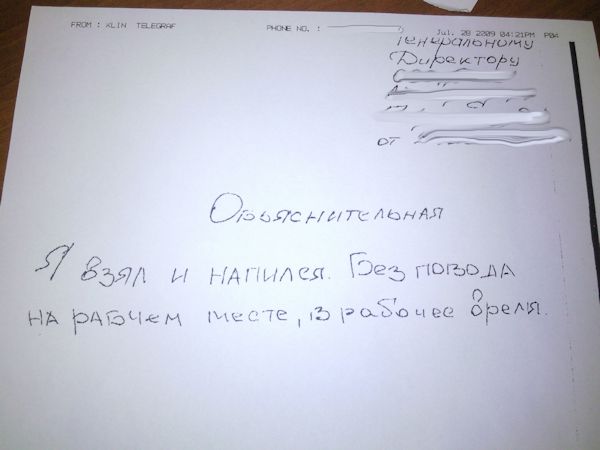 FROM : KLIN TELEGRAF PHONE NO. : Jul. 28 2009 04:21PM P04
Генеральному
Директору
от
Объяснительная
Я взял и напился. Без повода
на рабочем месте, в рабочее время.